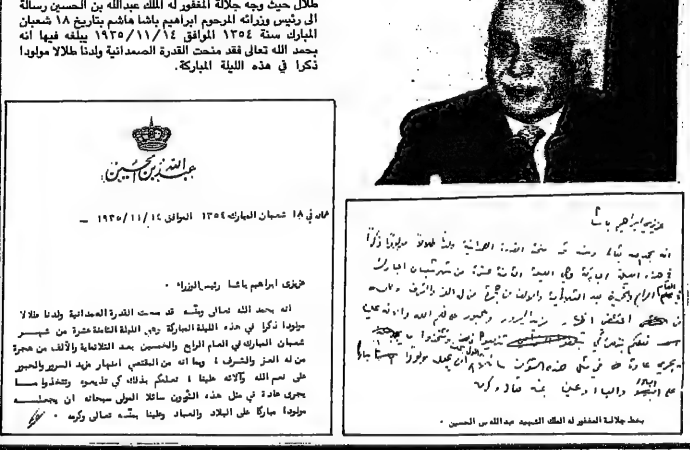 طلال حيث وجه جلالة المغفور له الملك عبدالله بن الحسين رسالة
الى رئيس وزرائه المرحوم ابراهيم باشا هاشم بتاريخ ١٨ شعبان
المبارك سنة ١٣٥٤ الموافق ١٩٣٥/١١/١٤ يبلغه فيها انه
بحمد الله تعالى فقد منحت القدرة الصمدانية ولدنا طلالا مولودا
ذكرا في هذه الليلة المباركة.
عبدالله بن الحسين
عمان في ١٨ شعبان المبارك ١٣٥٤ الموافق ١٩٣٥/١١/١٤ –
عزيزي ابراهيم باشا رئيس الوزراء ٠
انه بحمد الله تعالى ومنّه قد منحت القدرة الصمدانية ولدنا طلالا
مولودا ذكرا في هذه الليلة المباركة وهي الليلة الثامنة عشرة من شهر
شعبان المبارك في العام الرابع والخمسين بعد الثلاثماية والألف من هجرة
من له العز والشرف ، وبما انه من المقتضي اظهار مزيد السرور والحبور
على نعم الله وآلائه علينا ، نعلمكم بذلك كي تذيعوه وتتخذوا ما
يجرى عادة في مثل هذه الشؤون سائلا المولى سبحانه ان يجعله
مولودا مباركا على البلاد والعباد وعلينا بمنّه تعالى وكرمه ٠
عزيزي ابراهيم باشا
انه بحمد الله تعالى ومنه قد منحت القدرة الصمدانية ولدنا طلالا مولودا ذكرا
في هذه الليلة المباركة وهي الليلة الثامنة عشرة من شهر شعبان المبارك
بخط جلالة المغفور له الملك الشهيد عبدالله بن الحسين ٠